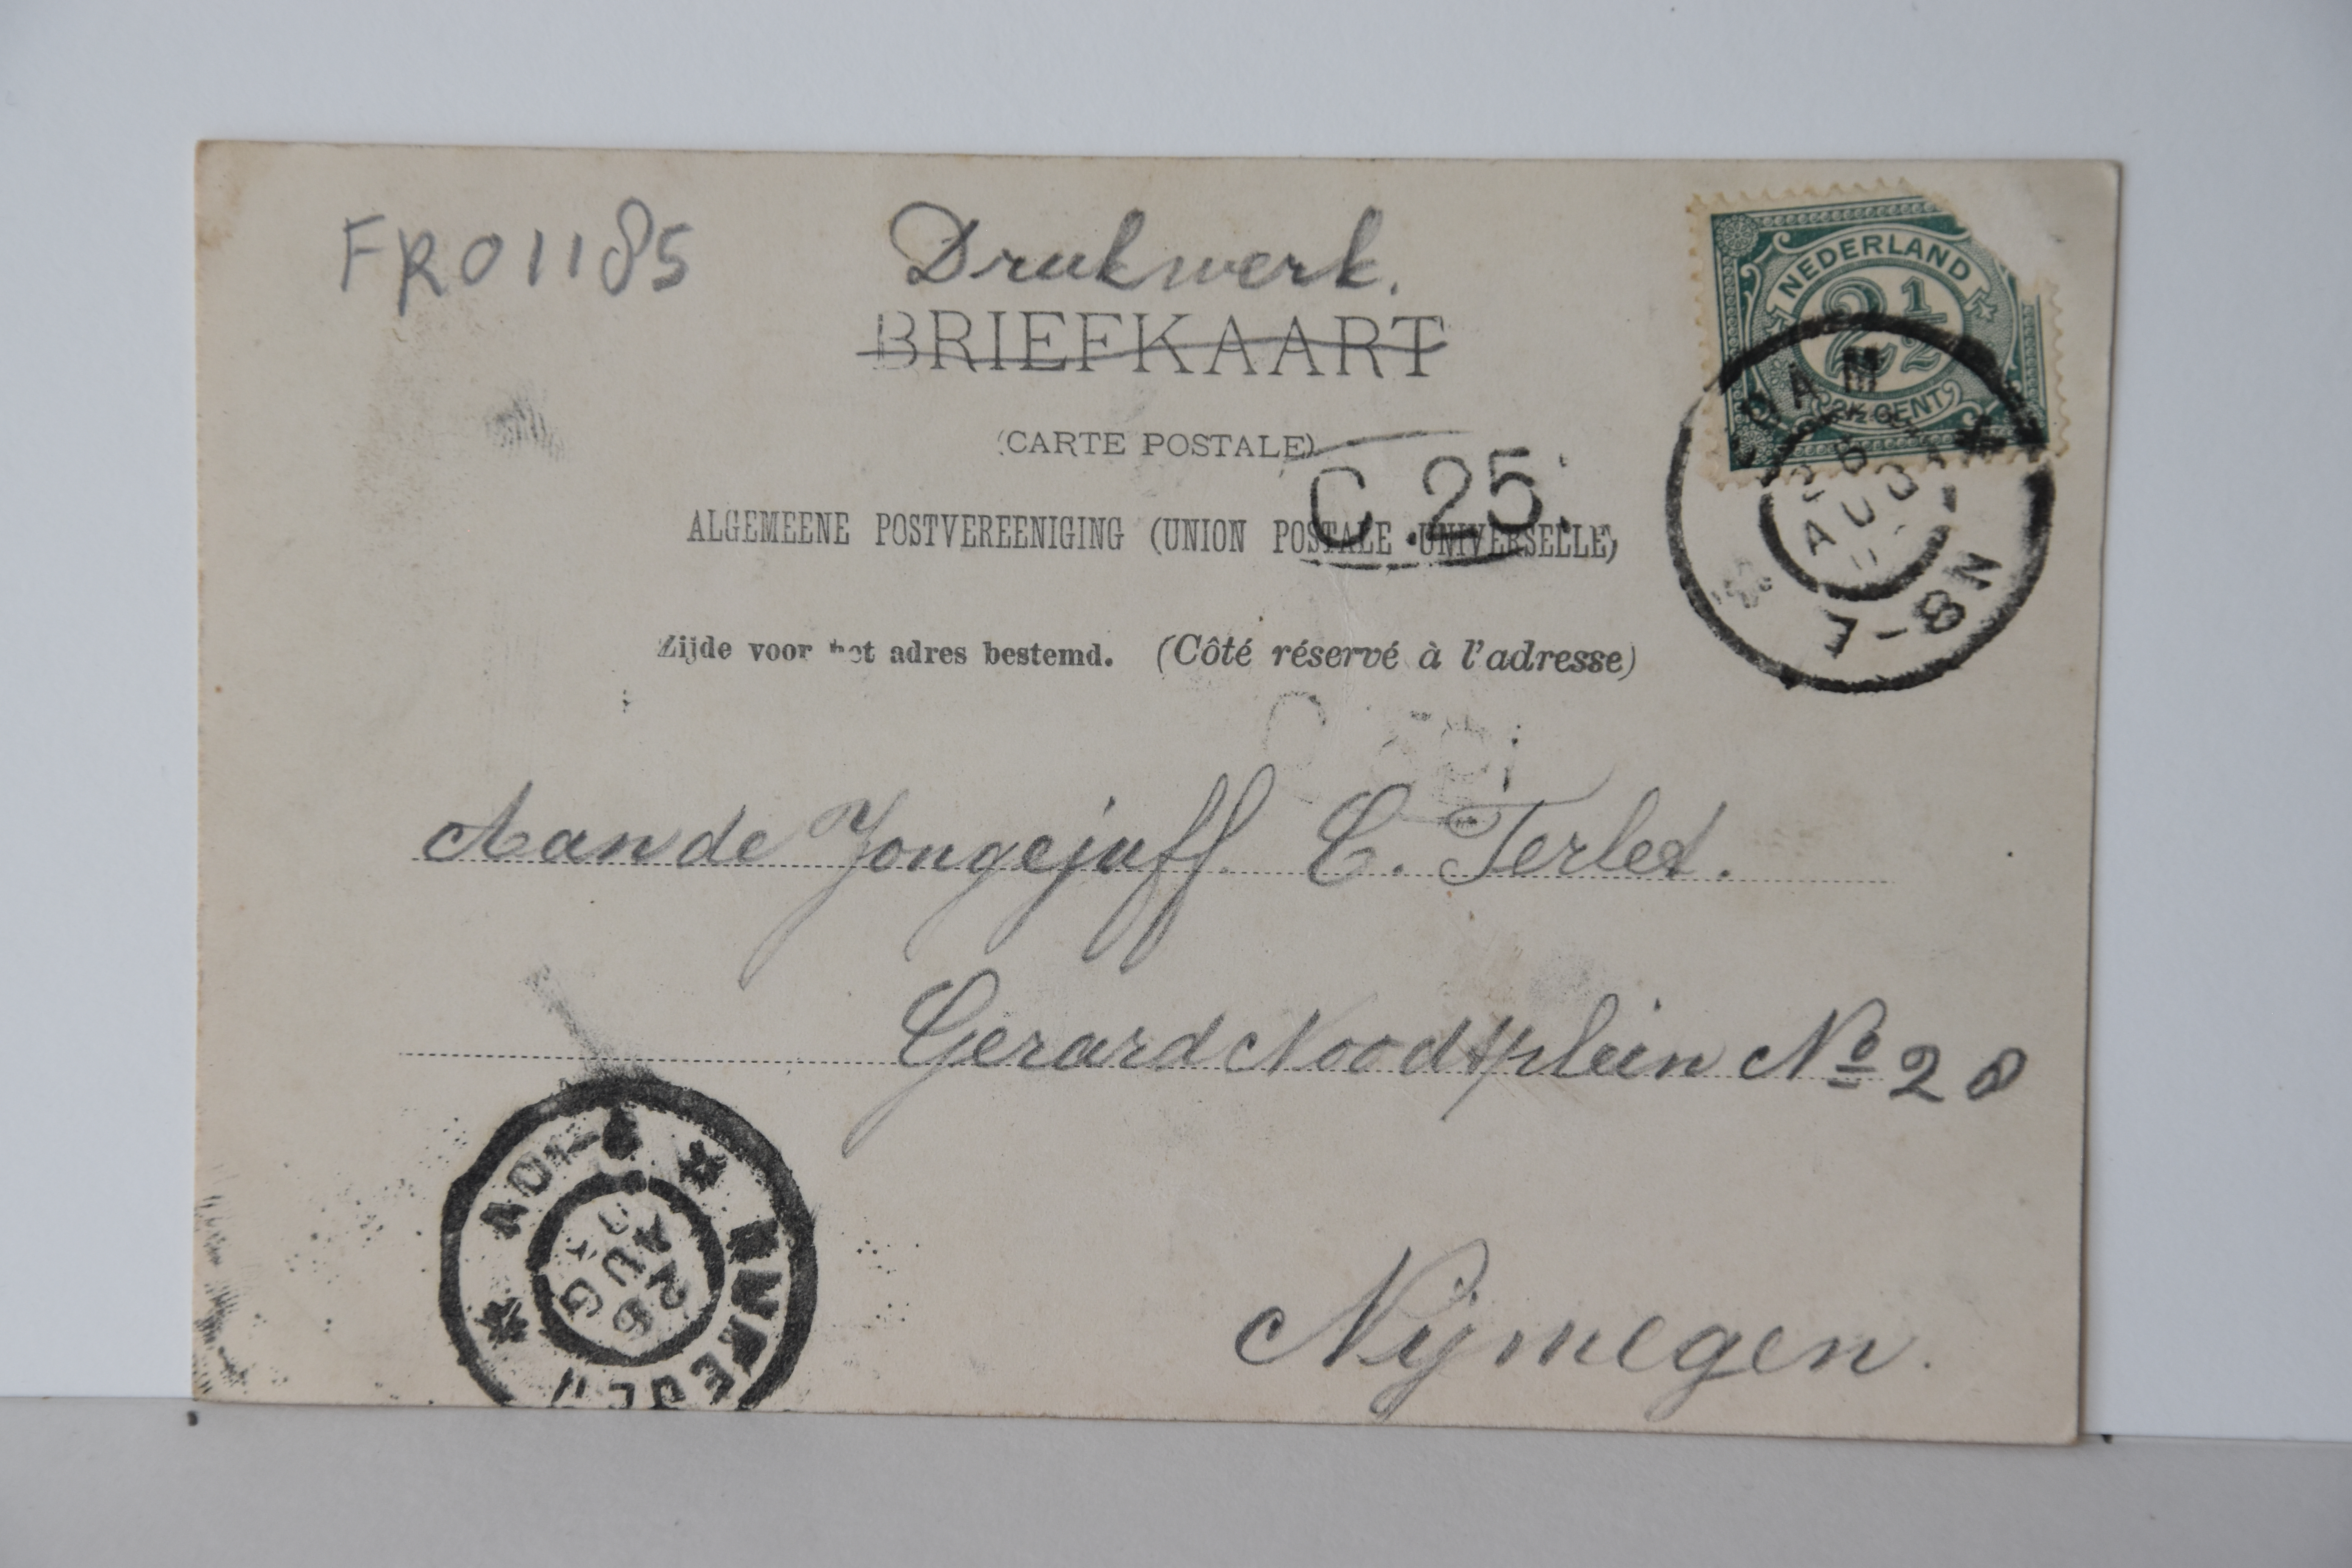 FR01185
Drukwerk.
BRIEFKAART
(CARTE POSTALE)
C.25.
ALGEMEENE POSTVEREENIGING (UNION POSTALE UNIVERSELLE)
Zijde voor het adres bestemd. (Côté réservé à l'adresse)
NEDERLAND
2½
2½ CENT
7-8N
Aan de Jongejuff. C. Terlet.
Gerard Noodtplein No 28
Nijmegen.
26
AUG